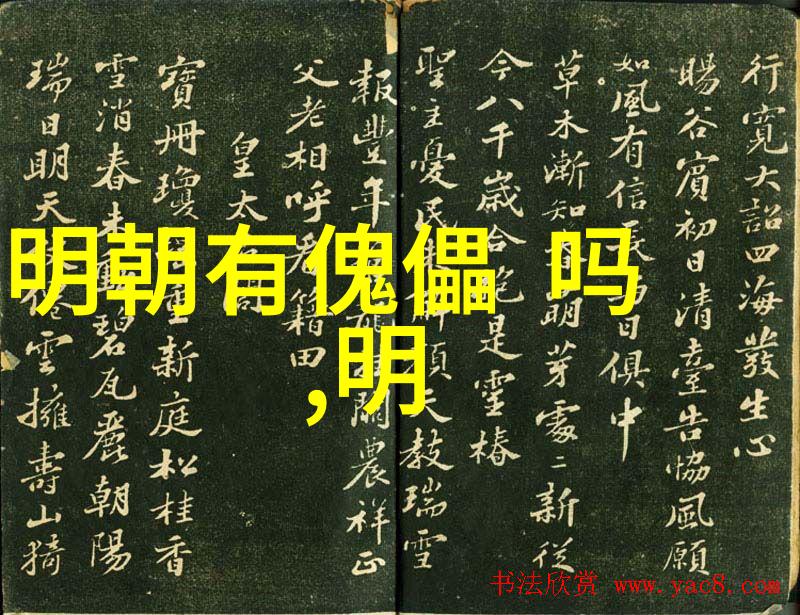 行寬大詔四海發生心
暘谷賓初日清臺告協風願
如風有信長日俱中
草木漸知春明芽處二新從
今八千歲合抱是靈椿
聖主憂民解顏天教瑞雪
報豐年農祥正
父老相呼看籍田
皇太
寶冊瓊重新庭松桂香
雪消春未動碧瓦麗朝陽
瑞日明天仗雲擁壽山猗
明朝有傀儡 吗
,明
书法欣赏 www.yac8.com